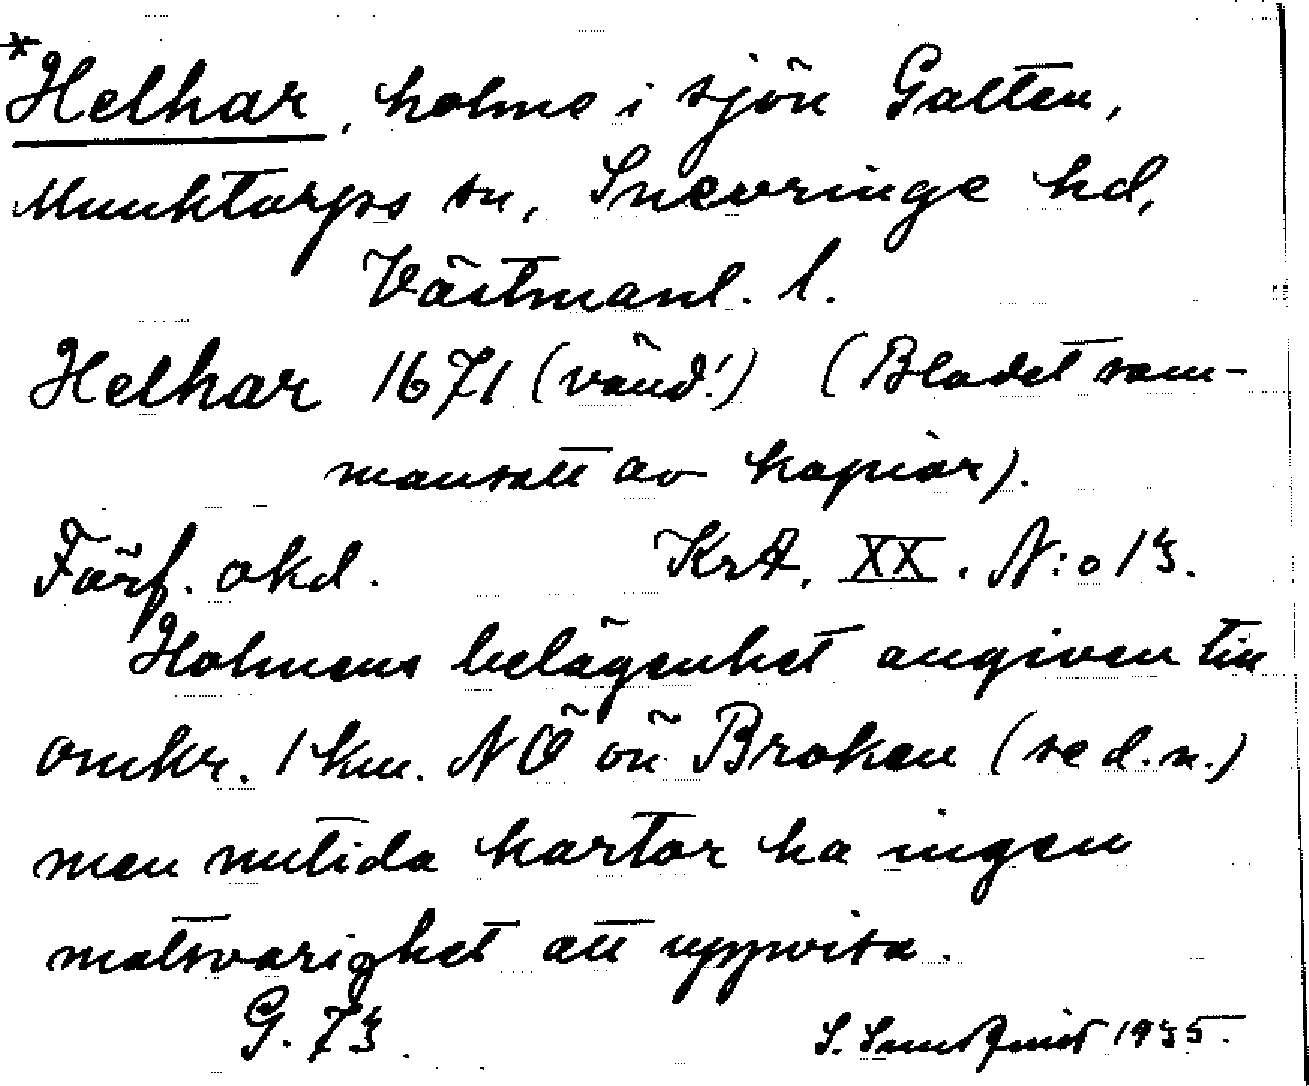 *Helhar, holme i sjön Galten,
Munktorps sn, Snevringe hd,
Västmanl. l.
Helhar 1671 (vänd!) (Bladet sam-
mansatt av kopior).
Förf. okd. KrA. XX. N:o 13.
Holmens belägenhet angiven till
omkr. 1 km. NÖ ön Broken (se d.n.)
men nutida kartor ha ingen
motsvarighet att uppvisa.
G. 73. S. Sundquist 1935.